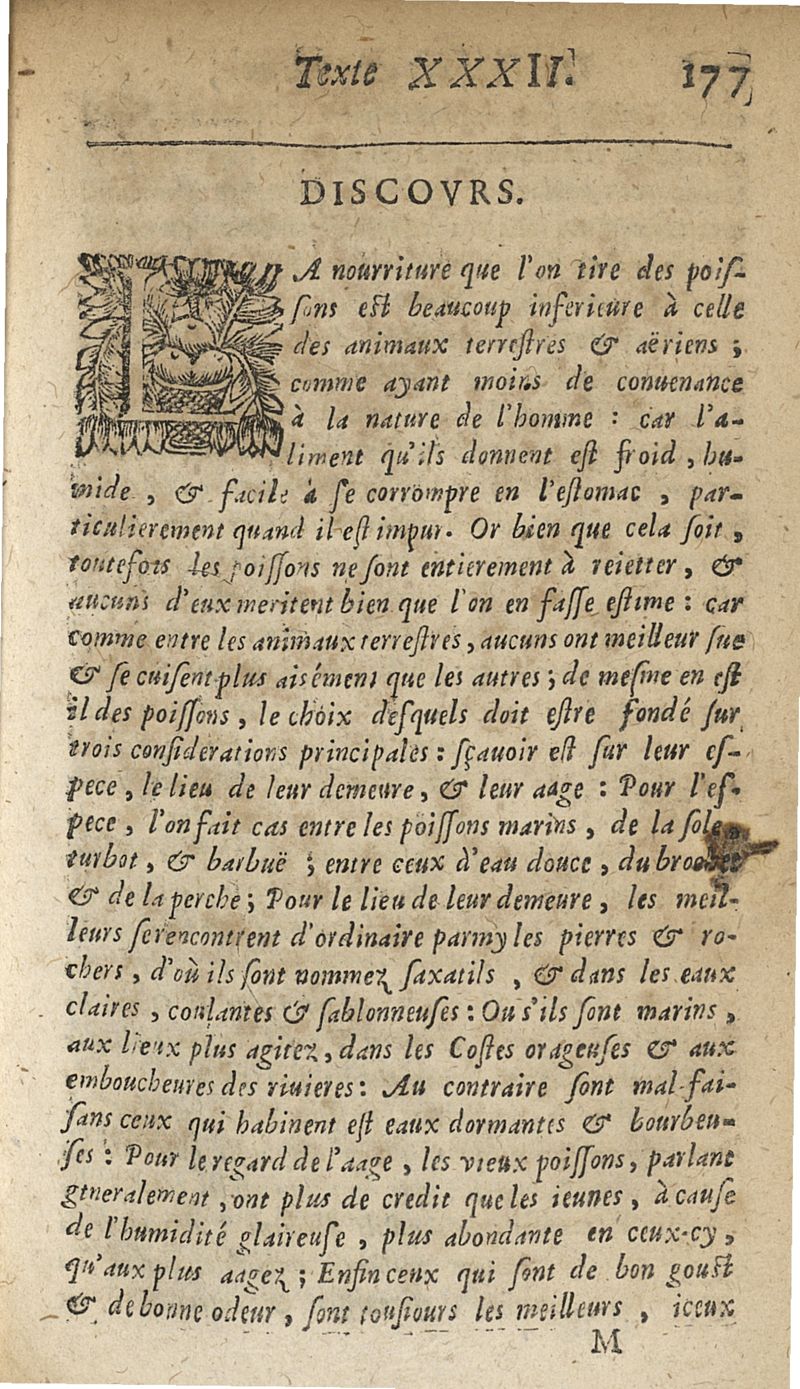 Texte XXXII. 177
DISCOVRS.
LA nourriture que l'on tire des poiſ-
ſons eſt beaucoup inferieure à celle
des animaux terreſtres & aëriens ;
comme ayant moins de conuenance
à la nature de l'homme : car l'a-
liment qu'ils donnent eſt froid , hu-
mide , & facile à ſe corrompre en l'eſtomac , par-
ticulierement quand il eſt impur. Or bien que cela ſoit ,
toutefois les poiſſons ne ſont entierement à reietter , &
aucuns d'eux meritent bien que l'on en faſſe eſtime : car
comme entre les animaux terreſtres , aucuns ont meilleur ſuc
& ſe cuiſent plus aisément que les autres ; de meſme en eſt
il des poiſſons , le choix deſquels doit eſtre fondé ſur
trois conſiderations principales : ſçauoir eſt ſur leur eſ-
pece , le lieu de leur demeure , & leur aage : Pour l'eſ-
pece , l'on fait cas entre les poiſſons marins , de la ſole ,
turbot , & barbuë ; entre ceux d'eau douce , du brochet
& de la perche ; Pour le lieu de leur demeure , les meil-
leurs ſe rencontrent d'ordinaire parmy les pierres & ro-
chers , d'où ils ſont nommez ſaxatils , & dans les eaux
claires , coulantes & ſablonneuſes : Ou s'ils ſont marins ,
aux lieux plus agitez , dans les Coſtes orageuſes & aux
emboucheures des riuieres : Au contraire ſont mal-fai-
ſans ceux qui habinent eſt eaux dormantes & bourbeu-
ſes : Pour le regard de l'aage , les vieux poiſſons , parlant
generalement , ont plus de credit que les ieunes , à cauſe
de l'humidité glaireuſe , plus abondante en ceux-cy ,
qu'aux plus aagez ; Enfin ceux qui ſont de bon gouſt
& de bonne odeur , ſont touſiours les meilleurs , iceux
M